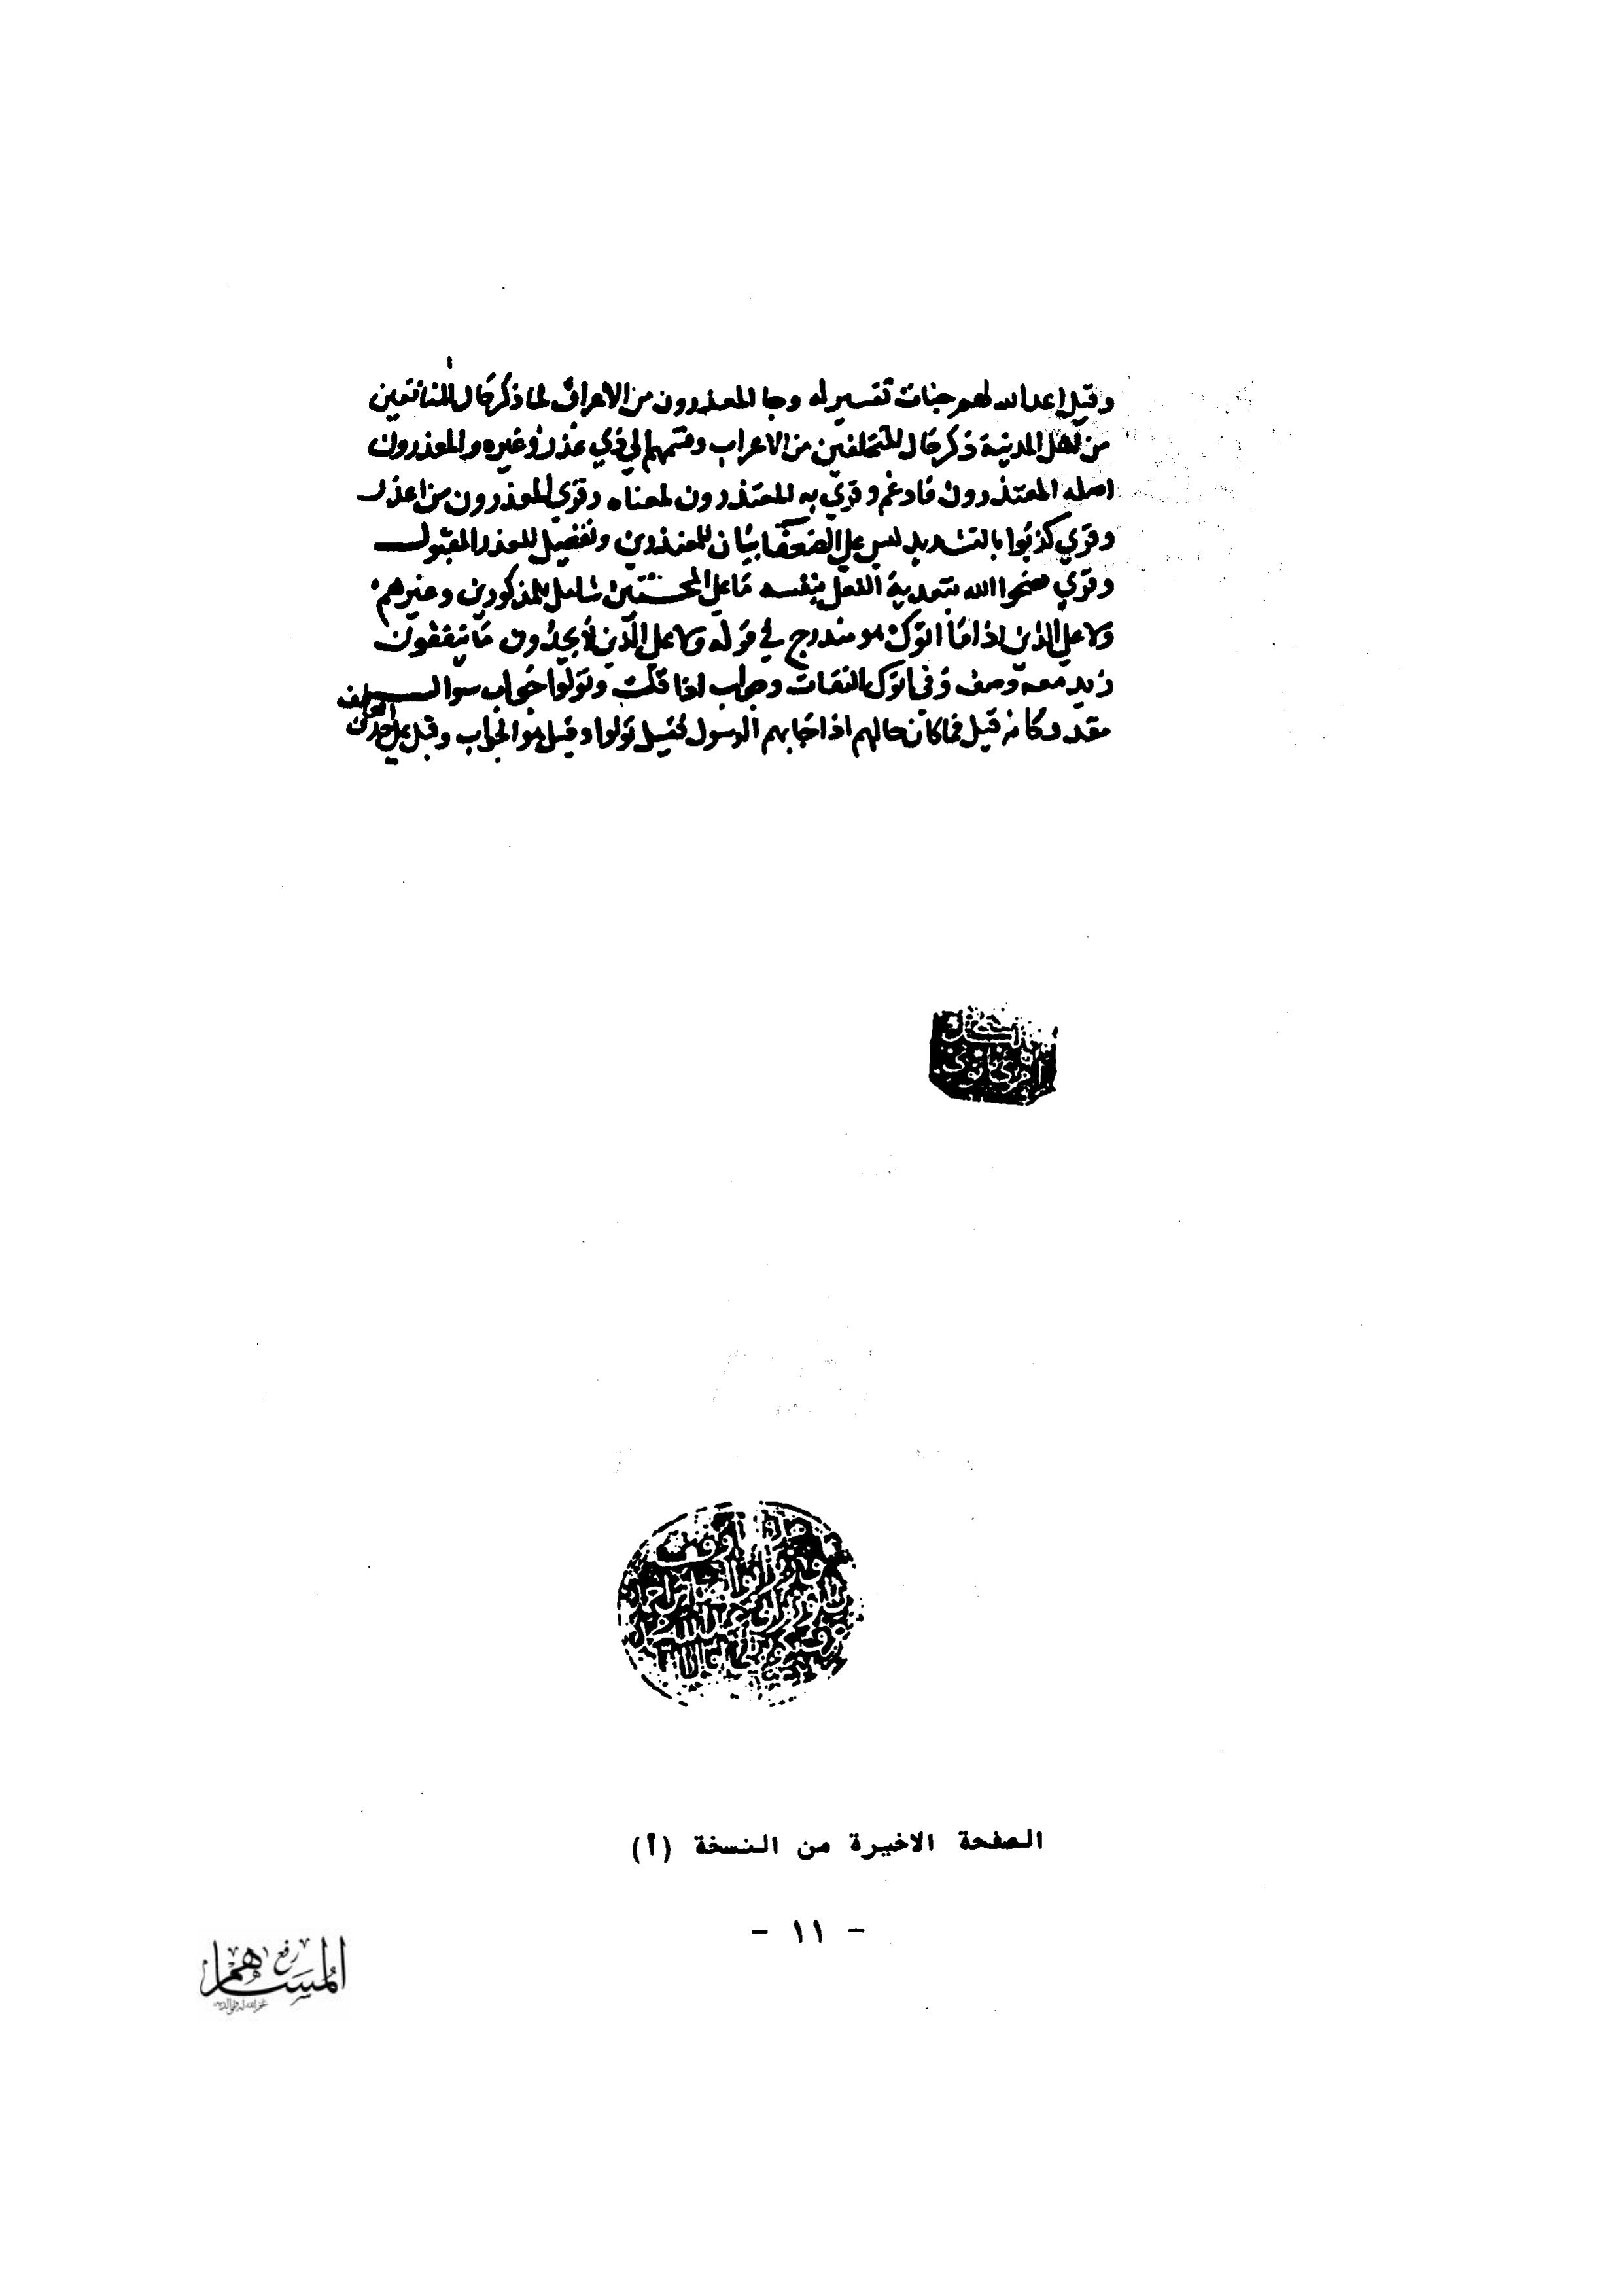 وقيل اعد الله لهم جنات تفسير له وجا المعذرون من الاعراب لما ذكر حال المنافقين
من اهل المدينة ذكر حال المتخلفين من الاعراب وقسمهم الي ذي عذر وغيره والمعذرون
اصله المعتذرون فادغم وقري به المعتذرون لمعناه وقري المعذرون من اعذر
وقري كذبوا بالتشديد ليس علي الضعفا بيان للمعتذرين وتفصيل للعذر المقبول
وقري نصحوا الله بتعدية الفعل بنفسه ما علي المحسنين شامل للمذكورين وغيرهم
ولا علي الذين اذا ما اتوك هو مندرج في قوله ولا علي الذين لا يجدون ما ينفقون
زيد معه وصف وفي اتوك التفات وجواب اذا قلت وتولوا جواب سوال
مقدر وكانه قيل فما كان حالهم اذا اجابهم الرسول فقيل تولوا وقيل هو الجواب وقيل علي حذف
العاطف
الصفحة الاخيرة من النسخة (أ)
- ١١ -
رفع
المساهم
غفر الله له ولوالديه